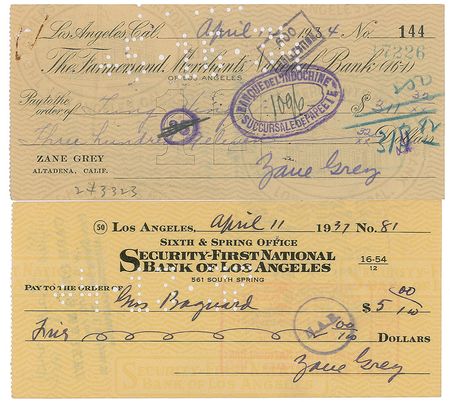 Los Angeles, Cal. April 1934 No. 144
226
The Farmers and Merchants National Bank (16-1)
OF LOS ANGELES
Pay to the order of $ 311 32
Three hundred eleven 32
BANQUE DE L'INDOCHINE
1096
SUCCURSALE DE PAPEETE
ZANE GREY
ALTADENA, CALIF.
243323
Zane Grey
50 Los Angeles, April 11 1937 No. 81
SIXTH & SPRING OFFICE
SECURITY-FIRST NATIONAL
BANK OF LOS ANGELES
16-54
12
561 SOUTH SPRING
PAY TO THE ORDER OF Gus Bagnard $ 5 00
Five 00 DOLLARS
Zane Grey
SECURITY-FIRST NATIONAL
BANK OF LOS ANGELES